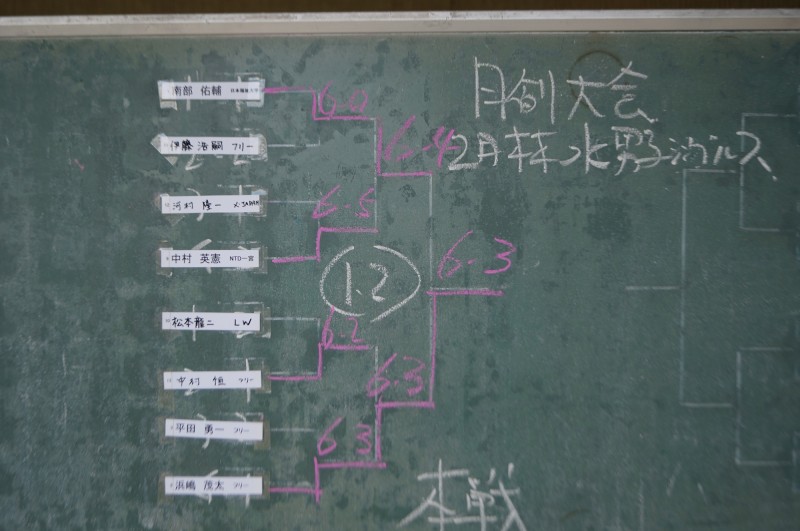 月例大会
2月林水男子シングルス
南部 佑輔
6-0
伊藤 浩嗣 フリー
6-4
河村 隆一 X-JAPAN
6-5
中村 英憲 NTD一宮
1.2
6-3
松本龍二 LW
6-2
中村 恒 フリー
6-3
平田 勇一 フリー
6 3
浜嶋 茂太 フリー
本戦